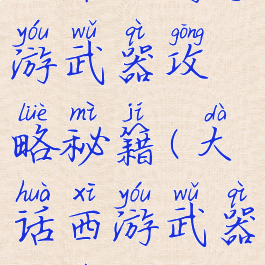 yóu wǔ qì gōng
游武器攻
lüè mì jí dà
略秘籍(大
huà xī yóu wǔ qì
话西游武器